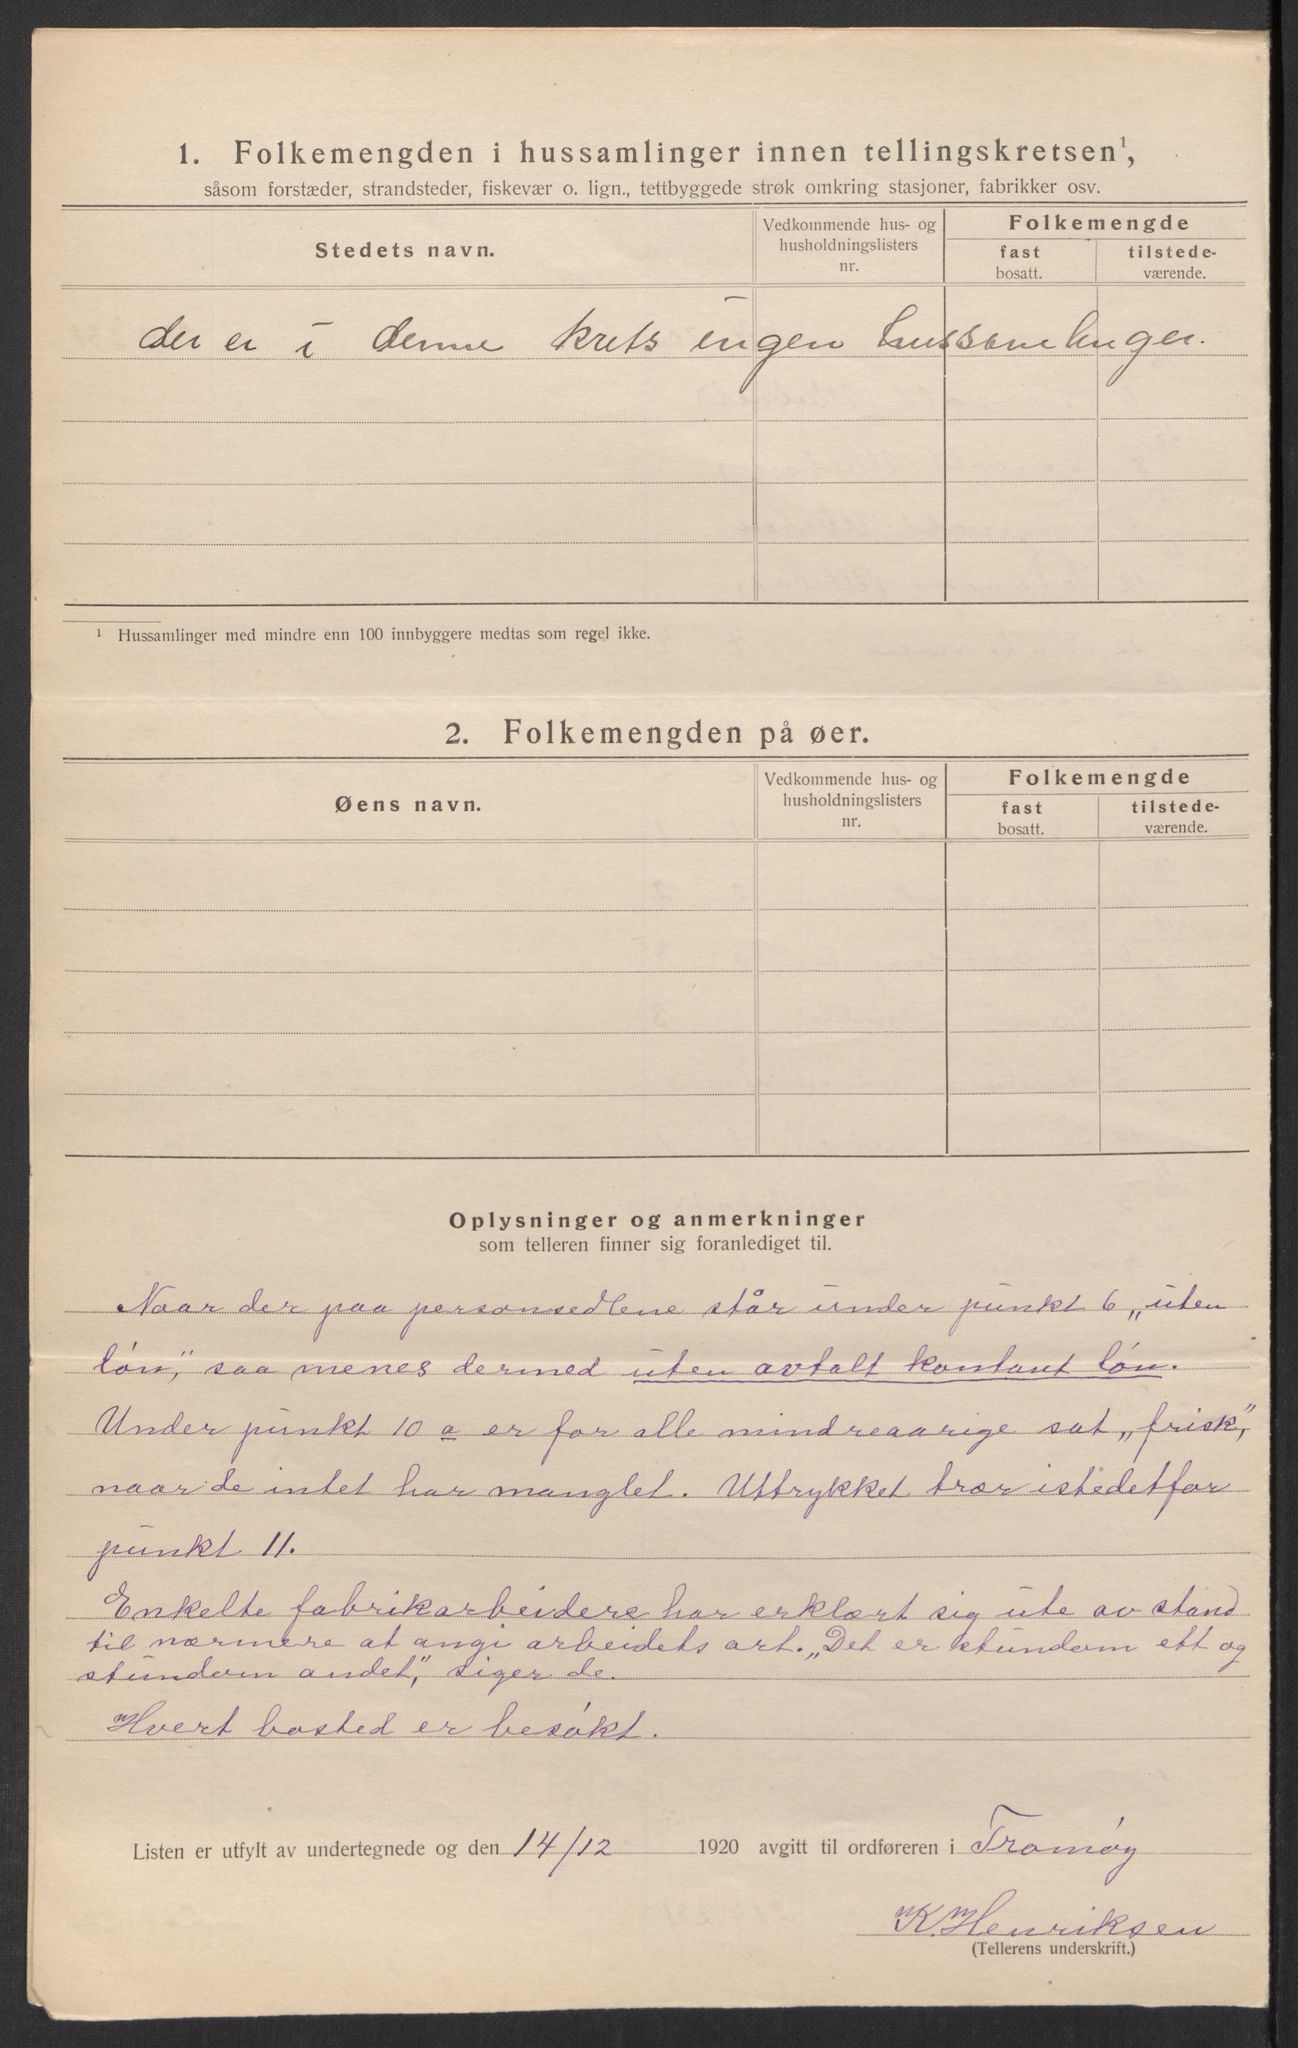 1. Folkemengden i hussamlinger innen tellingskretsen¹,
såsom forstæder, strandsteder, fiskevær o. lign., tettbyggede strøk omkring stasjoner, fabrikker osv.
Stedets navn.
Vedkommende hus- og
husholdningslisters
nr.
Folkemengde
fast
bosatt.
tilstede-
værende.
der er i denne krets ingen hussamlinger.
¹ Hussamlinger med mindre enn 100 innbyggere medtas som regel ikke.
2. Folkemengden på øer.
Øens navn.
Vedkommende hus- og
husholdningslisters
nr.
Folkemengde
fast
bosatt.
tilstede-
værende.
Oplysninger og anmerkninger
som telleren finner sig foranlediget til.
Naar der paa personsedlene står under punkt 6 „uten
løn”, saa menes dermed uten avtalt kontant løn.
Under punkt 10 a er for alle mindreaarige sat „frisk”,
naar de intet har manglet. Uttrykket trær istedetfor
punkt 11.
Enkelte fabrikarbeidere har erklært sig ute av stand
til nærmere at angi arbeidets art. „Det er stundom ett og
stundom andet”, siger de.
Hvert bosted er besøkt.
Listen er utfylt av undertegnede og den 14/12 1920 avgitt til ordføreren i Tromøy
K. Henriksen
(Tellerens underskrift.)